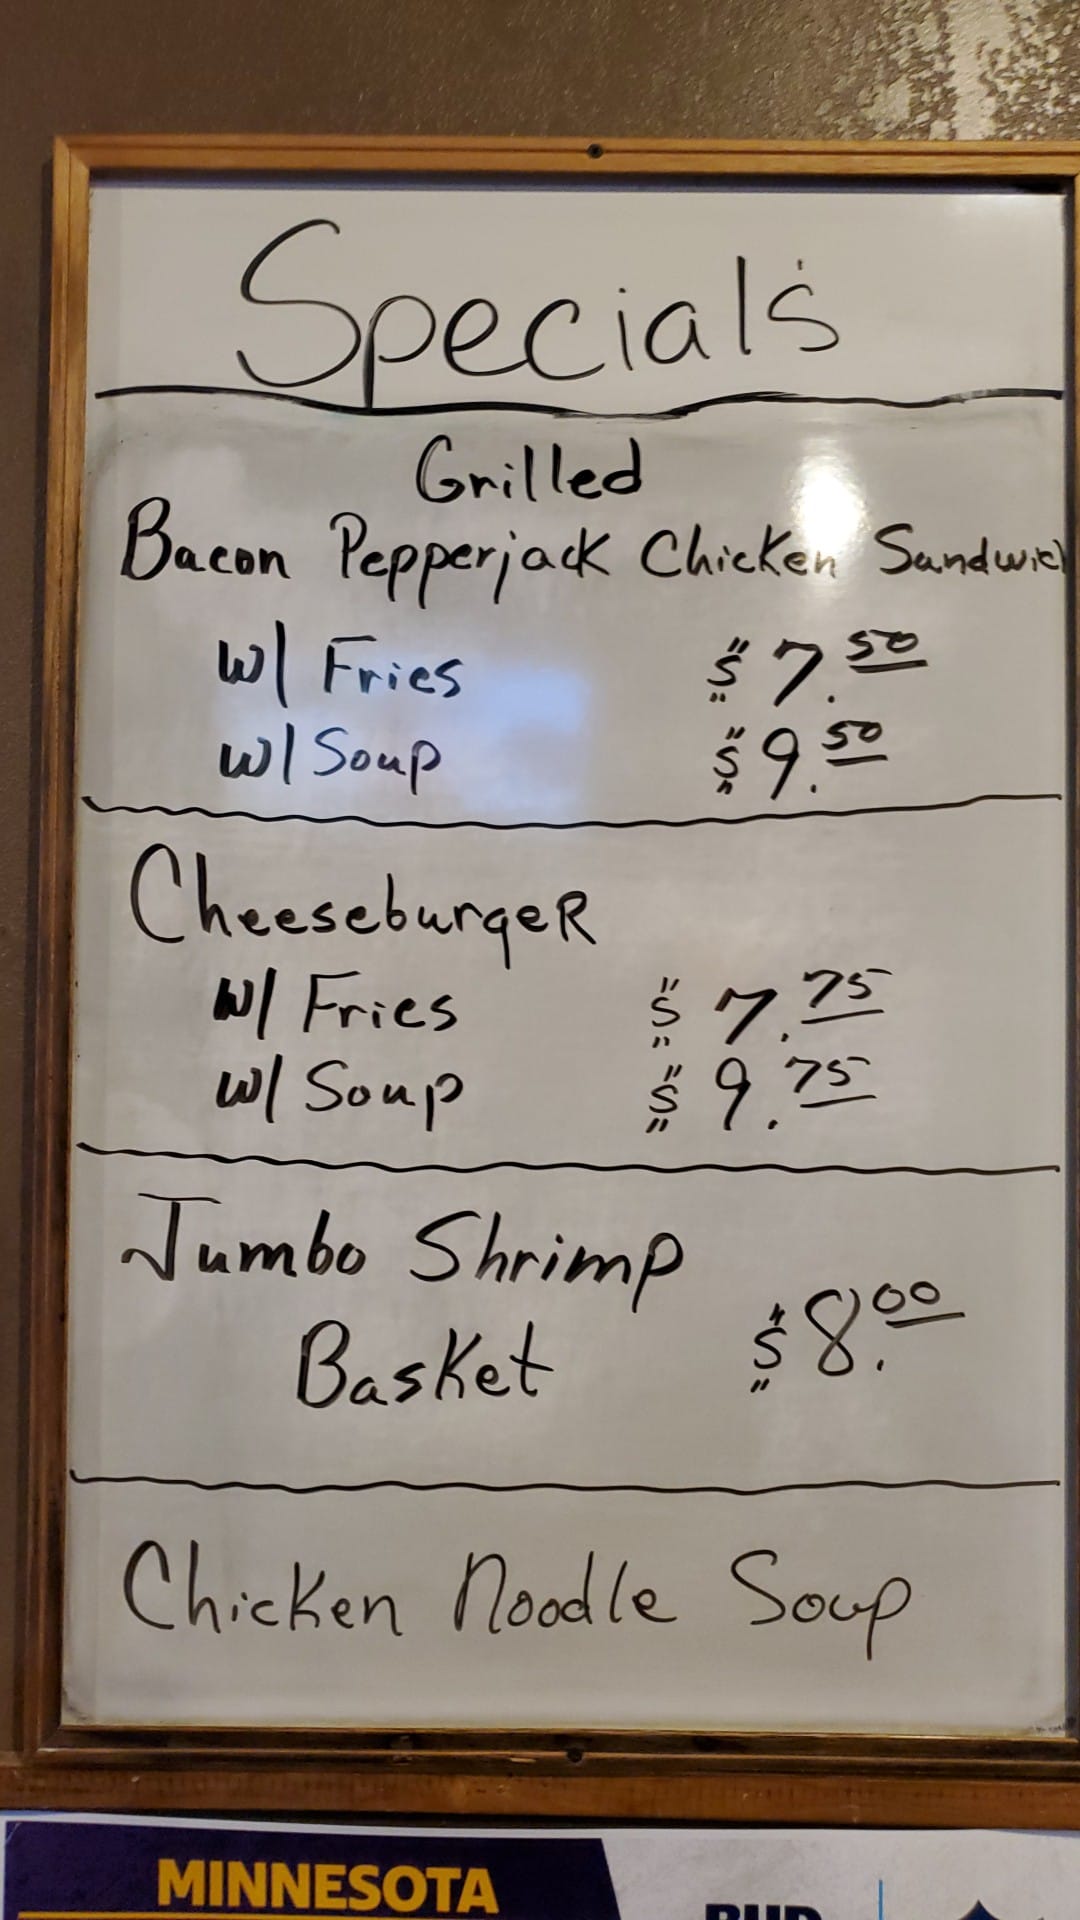 Specials
Grilled
Bacon Pepperjack Chicken Sandwich
w/ Fries $7.50
w/ Soup $9.50
Cheeseburger
w/ Fries $7.75
w/ Soup $9.75
Jumbo Shrimp
Basket $8.00
Chicken Noodle Soup
MINNESOTA
BUD